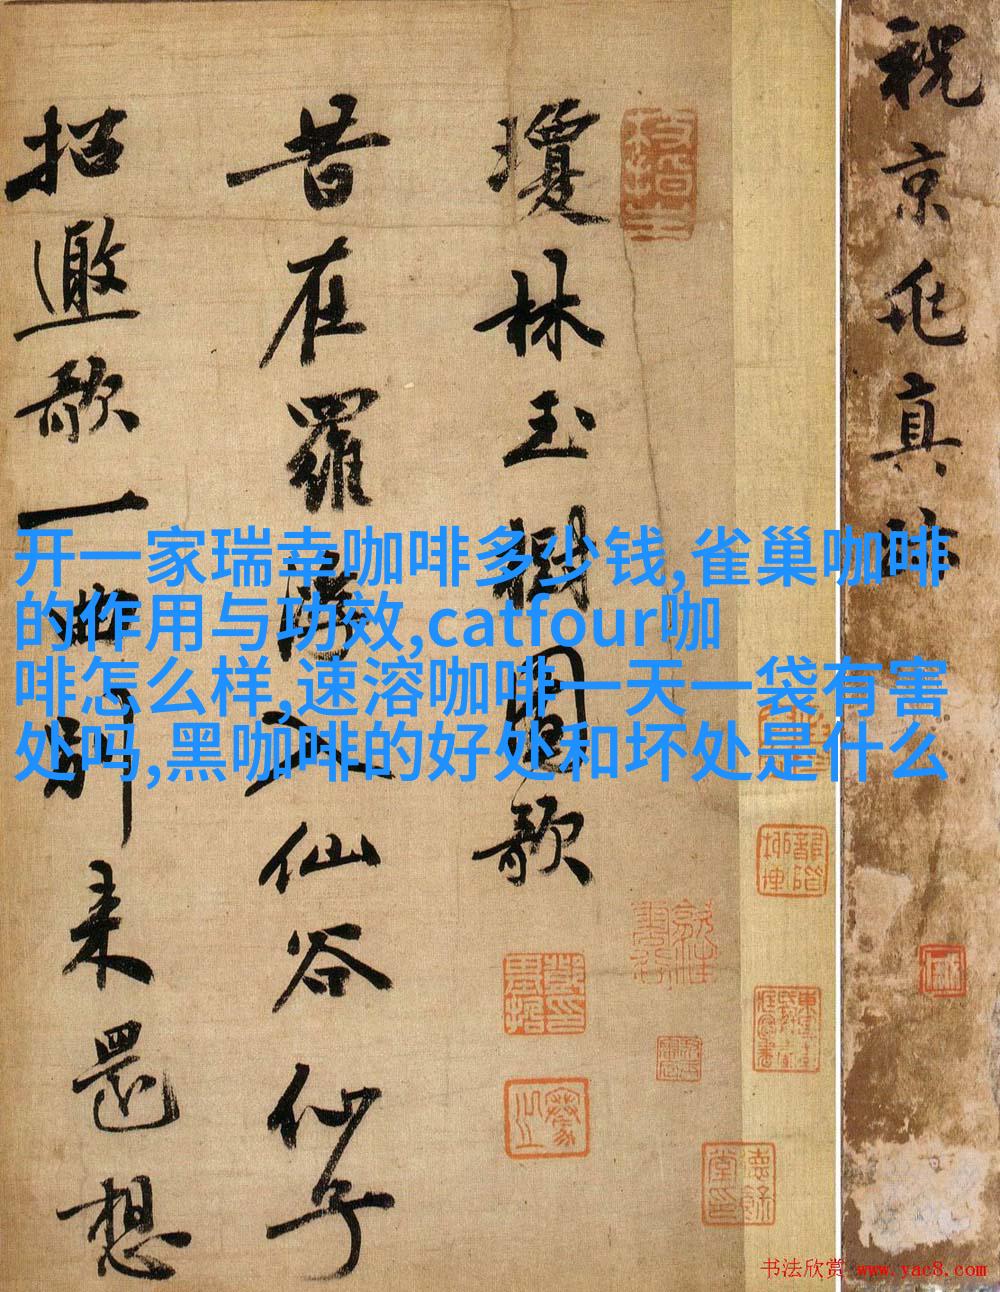 祝京兆真
瓊林玉樹圖歌
昔在羅浮入仙谷仙子
招邀歌一曲別来還想
开一家瑞幸咖啡多少钱,雀巢咖啡
的作用与功效,catfour咖
啡怎么样,速溶咖啡一天一袋有害
处吗,黑咖啡的好处和坏处是什么
书法欣赏 www.yac8.com